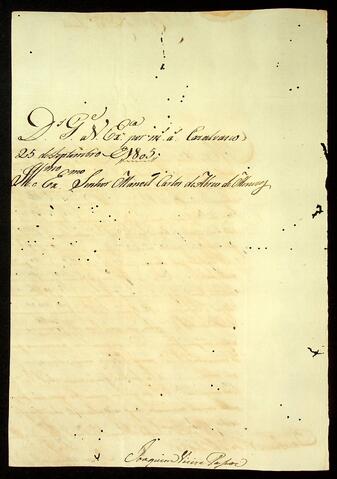 Ds. Gde. a V. Exa. por ms. as.
25 de Septembro de 1805
Illmo. e Exmo. Senhor Manoel Carlos de Abreu de Menezes
Joaquim Vieira